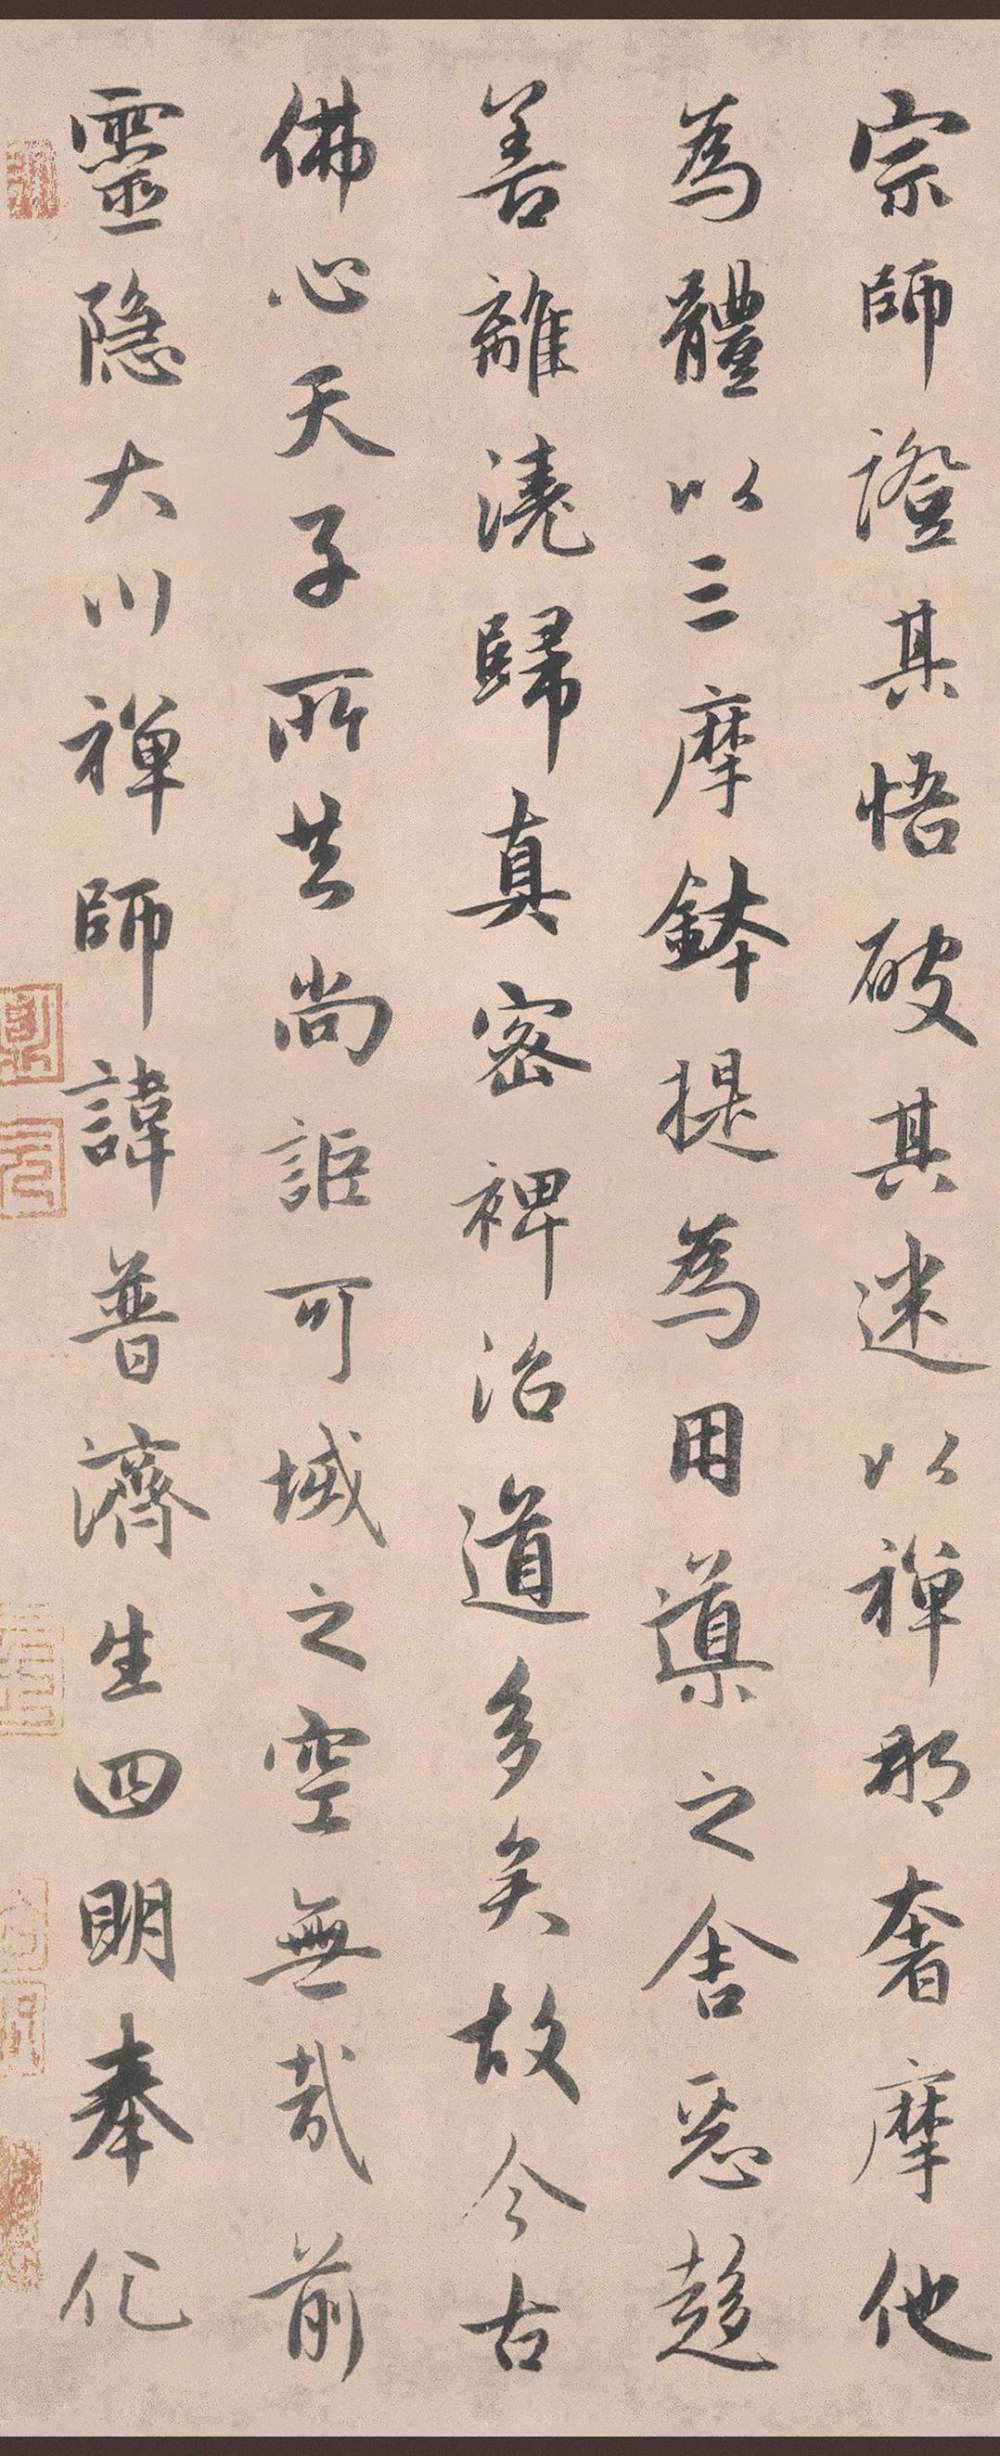 宗師證其悟破其迷以禅那奢摩他
為體以三摩鉢提為用導之舍惡趍
善離澆歸真密裨治道多矣故今古
佛心天子所共尚詎可域之空無哉前
靈隐大川禅師諱普濟生四明奉化